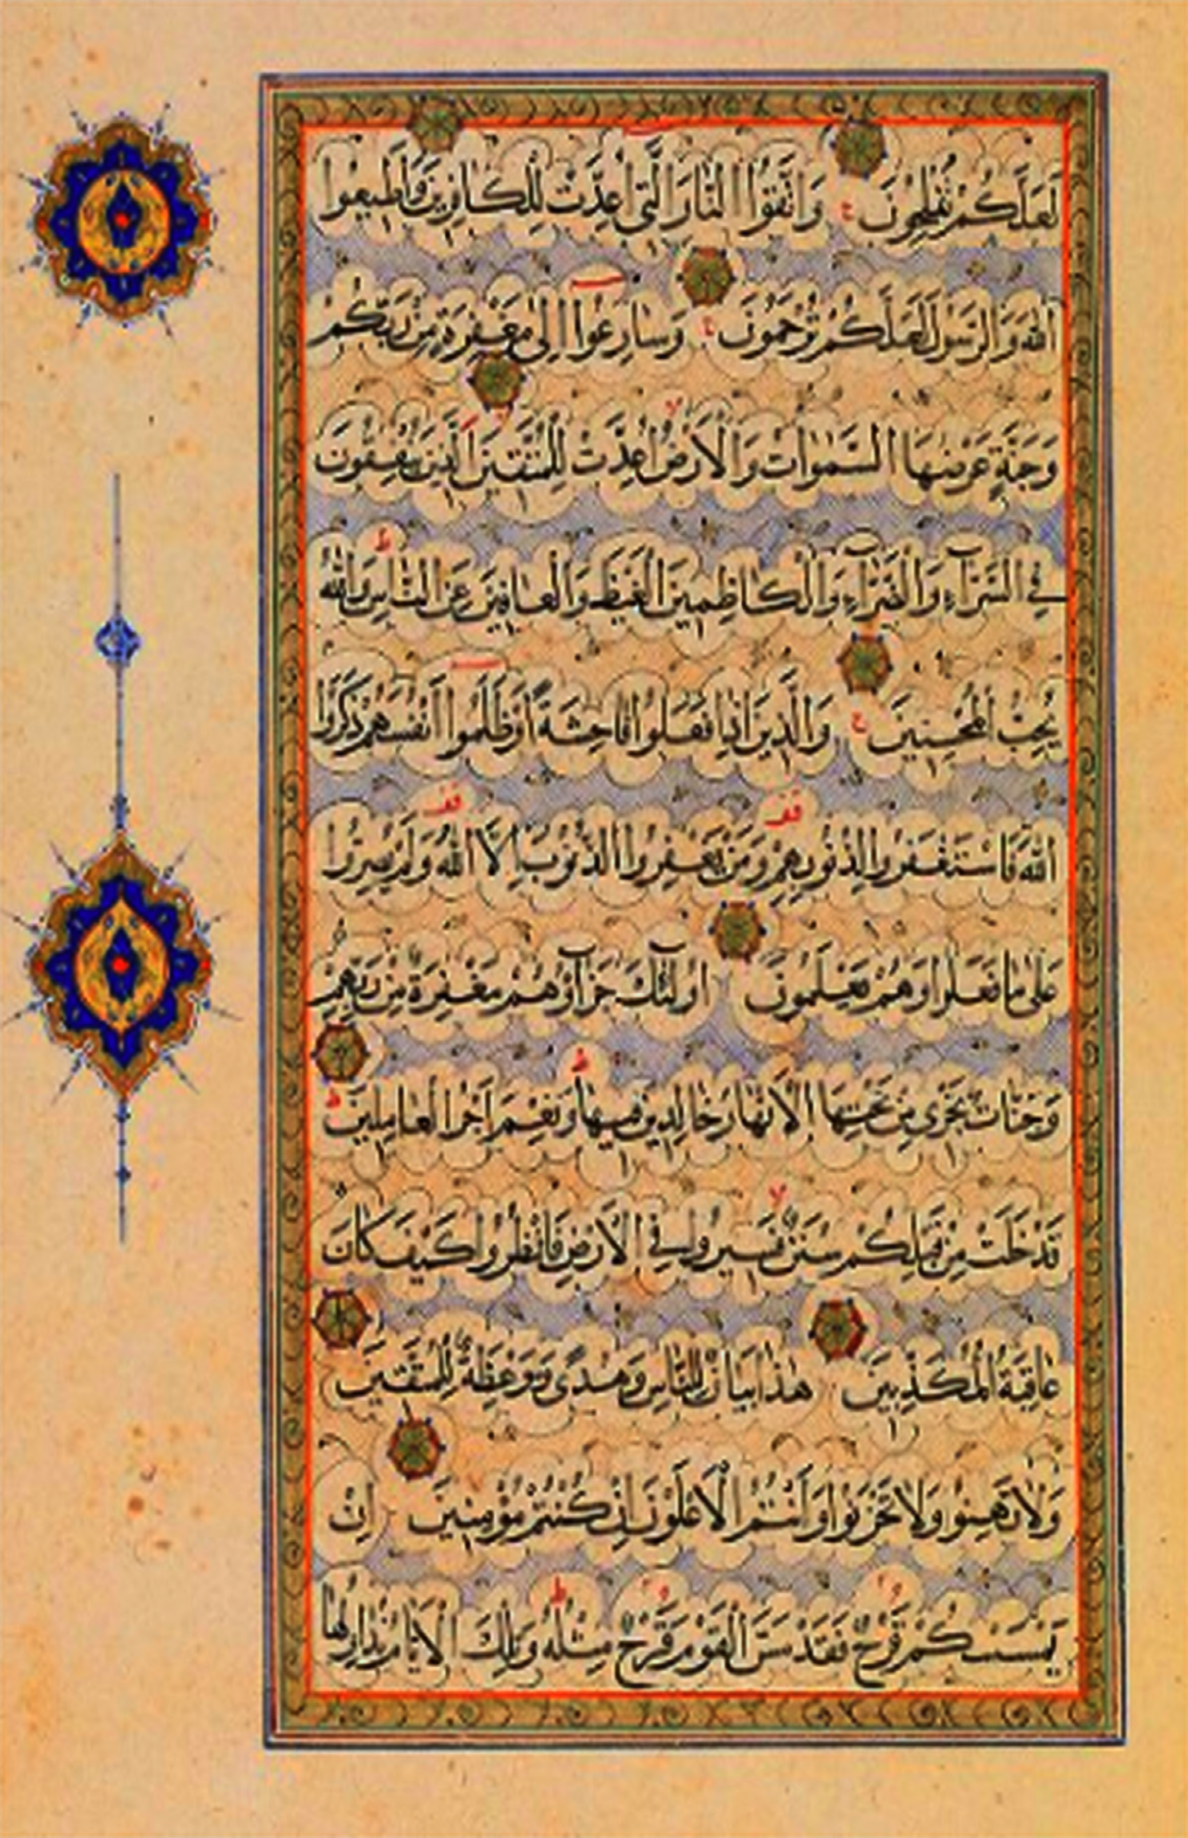 لَعَلَّكُمْ تُفْلِحُونَ ج وَاتَّقُوا النَّارَ الَّتِي أُعِدَّتْ لِلْكَافِرِينَ وَأَطِيعُوا
اللهَ وَالرَّسُولَ لَعَلَّكُمْ تُرْحَمُونَ ج وَسَارِعُوا إِلَى مَغْفِرَةٍ مِنْ رَبِّكُمْ
وَجَنَّةٍ عَرْضُهَا السَّمٰوَاتُ وَالْأَرْضُ أُعِدَّتْ لِلْمُتَّقِينَ الَّذِينَ يُنْفِقُونَ
فِي السَّرَّاءِ وَالضَّرَّاءِ وَالْكَاظِمِينَ الْغَيْظَ وَالْعَافِينَ عَنِ النَّاسِ ط وَاللهُ
يُحِبُّ الْمُحْسِنِينَ ج وَالَّذِينَ إِذَا فَعَلُوا فَاحِشَةً أَوْ ظَلَمُوا أَنْفُسَهُمْ ذَكَرُوا
اللهَ فَاسْتَغْفَرُوا لِذُنُوبِهِمْ قف وَمَنْ يَغْفِرُ الذُّنُوبَ إِلَّا اللهُ قف وَلَمْ يُصِرُّوا
عَلَى مَا فَعَلُوا وَهُمْ يَعْلَمُونَ أُولٰئِكَ جَزَاؤُهُمْ مَغْفِرَةٌ مِنْ رَبِّهِمْ
وَجَنَّاتٌ تَجْرِي مِنْ تَحْتِهَا الْأَنْهَارُ خَالِدِينَ فِيهَا ط وَنِعْمَ أَجْرُ الْعَامِلِينَ ط
قَدْ خَلَتْ مِنْ قَبْلِكُمْ سُنَنٌ لا فَسِيرُوا فِي الْأَرْضِ فَانْظُرُوا كَيْفَ كَانَ
عَاقِبَةُ الْمُكَذِّبِينَ هٰذَا بَيَانٌ لِلنَّاسِ وَهُدًى وَمَوْعِظَةٌ لِلْمُتَّقِينَ
وَلَا تَهِنُوا وَلَا تَحْزَنُوا وَأَنْتُمُ الْأَعْلَوْنَ إِنْ كُنْتُمْ مُؤْمِنِينَ إِنْ
يَمْسَسْكُمْ قَرْحٌ فَقَدْ مَسَّ الْقَوْمَ قَرْحٌ مِثْلُهُ ط وَتِلْكَ الْأَيَّامُ نُدَاوِلُهَا